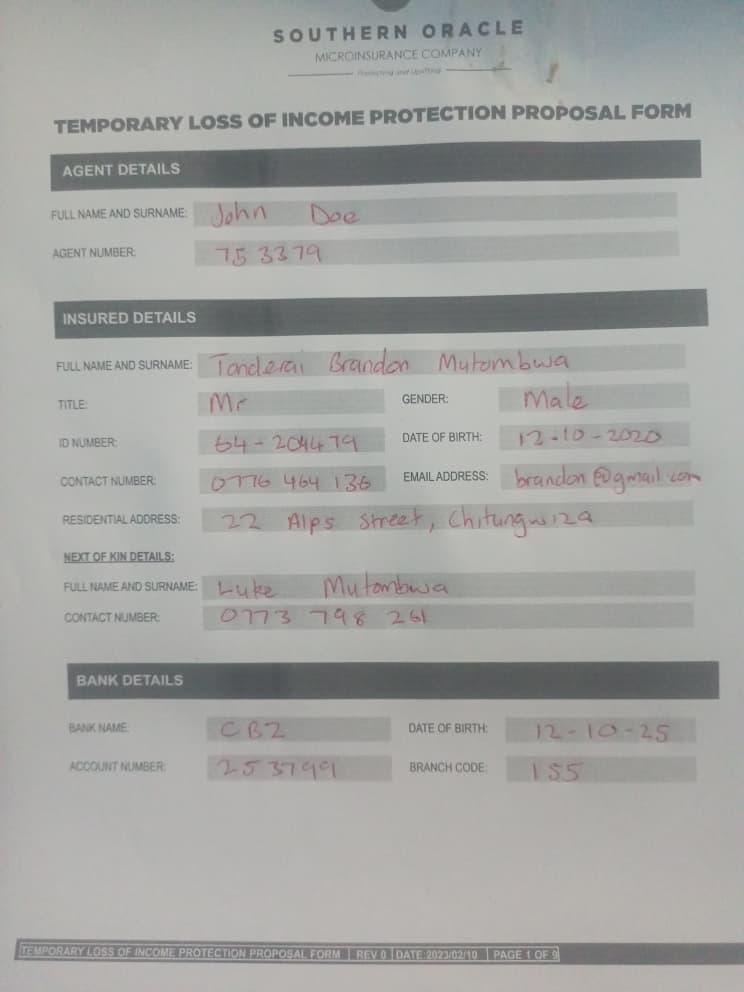 SOUTHERN ORACLE
MICROINSURANCE COMPANY
Protecting and Uplifting
TEMPORARY LOSS OF INCOME PROTECTION PROPOSAL FORM
AGENT DETAILS
FULL NAME AND SURNAME: John Doe
AGENT NUMBER: 753379
INSURED DETAILS
FULL NAME AND SURNAME: Tonderai Brandon Mutombwa
TITLE: Mr GENDER: Male
ID NUMBER: 64-204479 DATE OF BIRTH: 12-10-2020
CONTACT NUMBER: 0776 464 136 EMAIL ADDRESS: brandon@gmail.com
RESIDENTIAL ADDRESS: 22 Alps Street, Chitungwiza
NEXT OF KIN DETAILS:
FULL NAME AND SURNAME: Luke Mutombwa
CONTACT NUMBER: 0773 798 261
BANK DETAILS
BANK NAME: CBZ DATE OF BIRTH: 12-10-25
ACCOUNT NUMBER: 253799 BRANCH CODE: 155
TEMPORARY LOSS OF INCOME PROTECTION PROPOSAL FORM | REV 0 | DATE:2023/02/10 | PAGE 1 OF 9